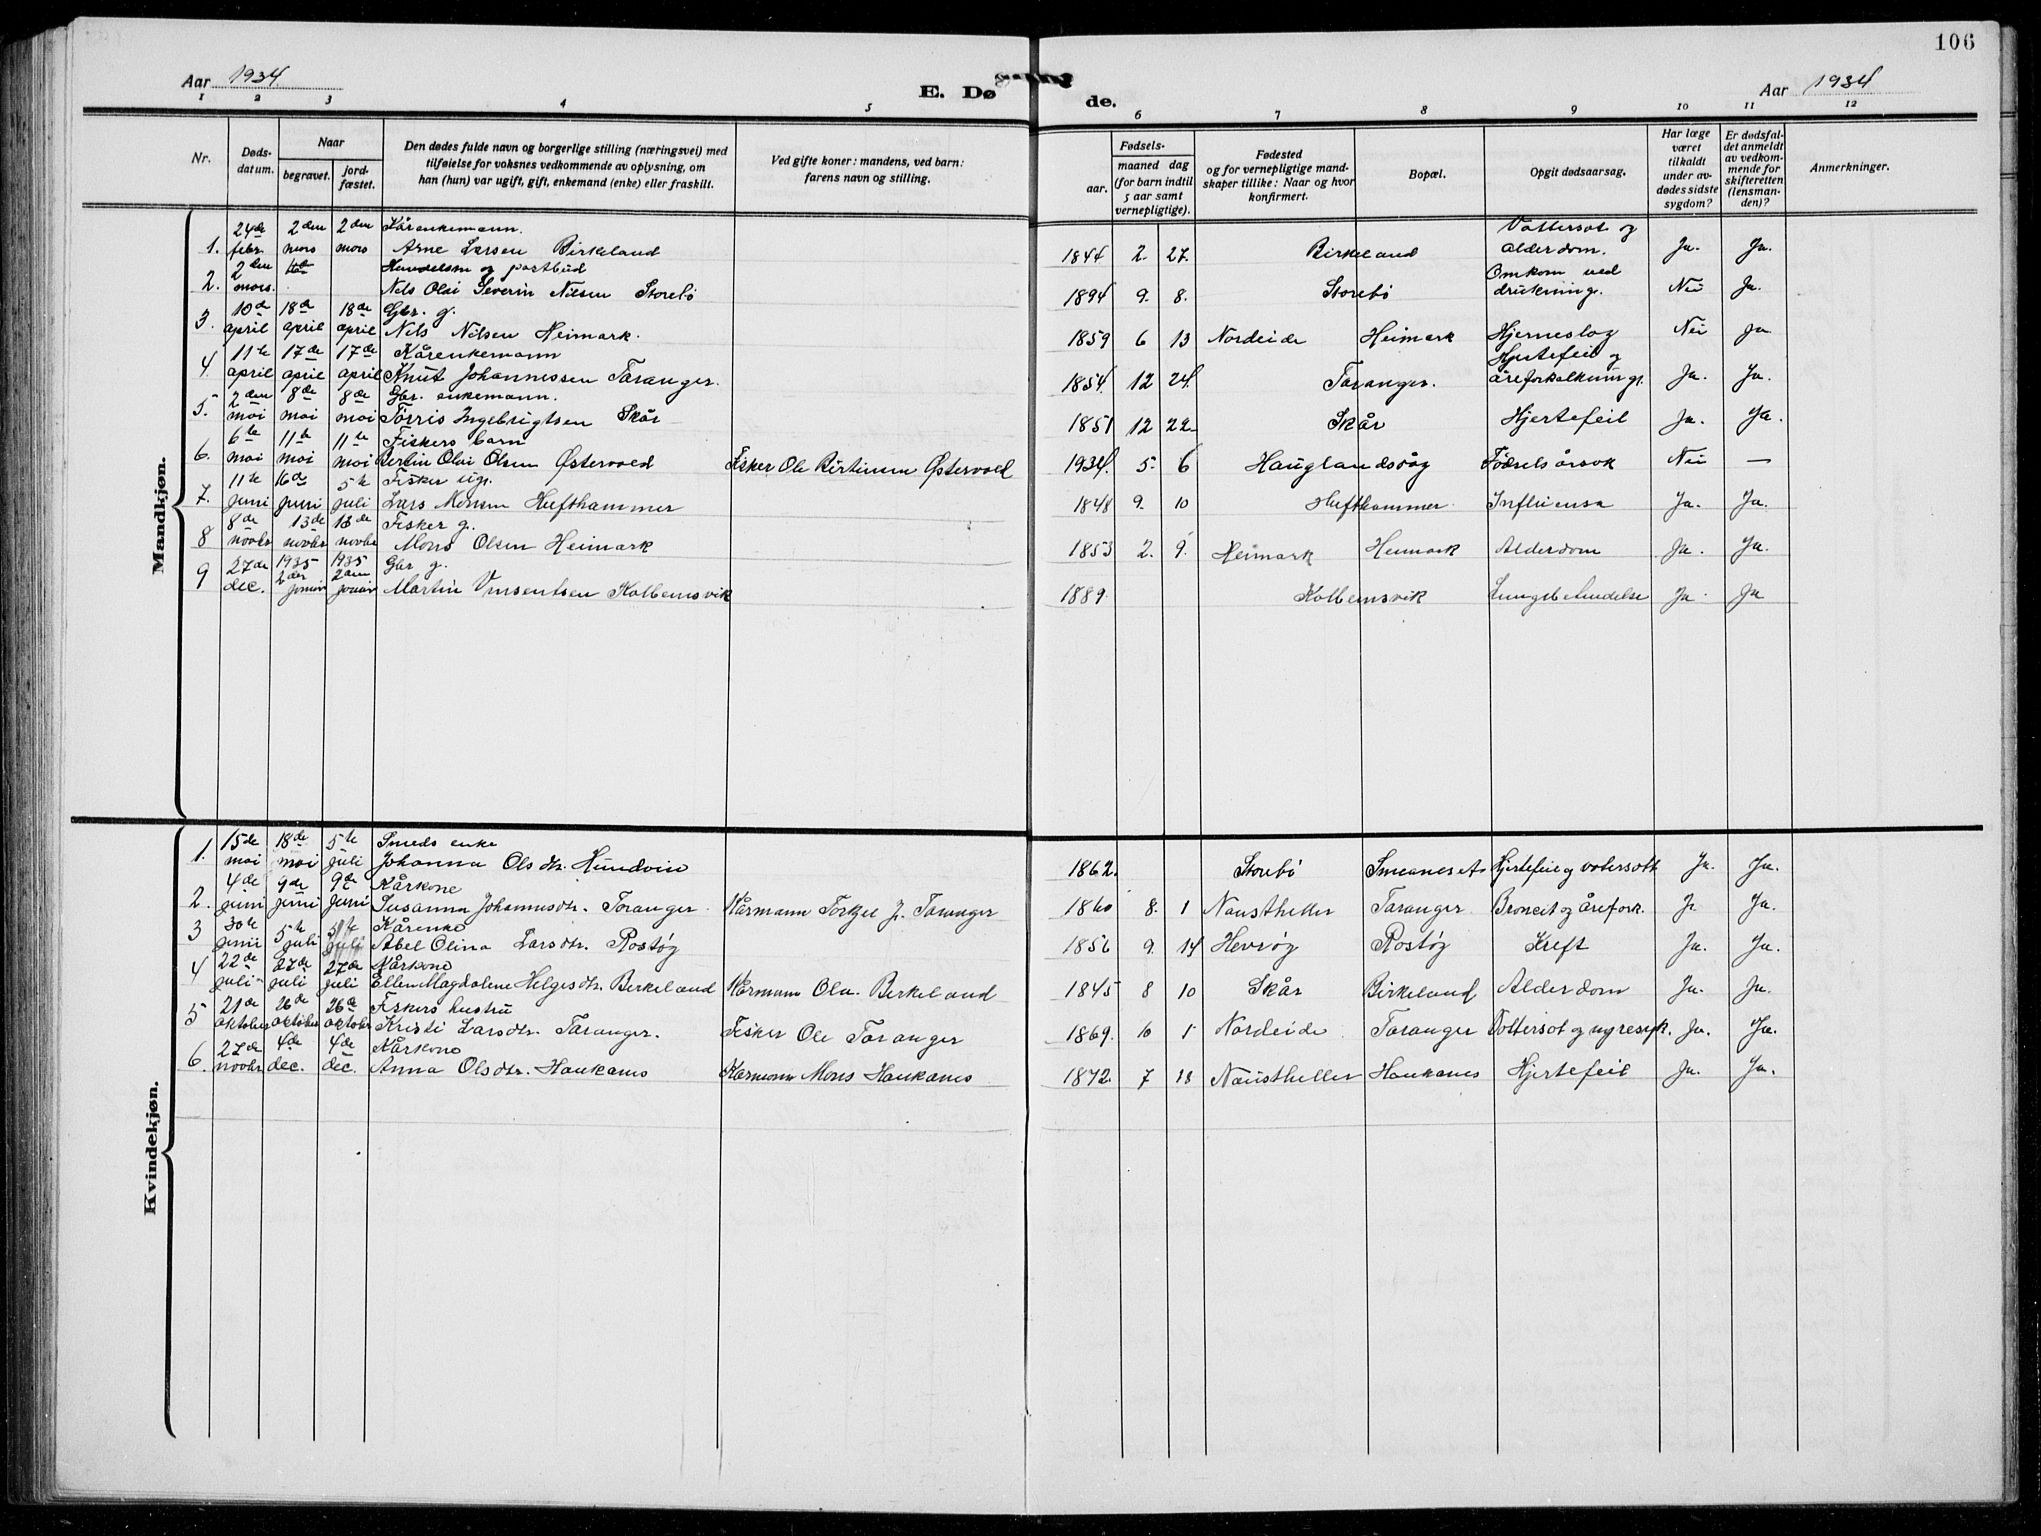 106
Aar 1934.
E. Dø
de.
Aar 1934
1 2 3 4 5 6 7 8 9 10 11 12
Nr.
Døds-
datum.
Naar
begravet.
jord-
fæstet.
Den dødes fulde navn og borgerlige stilling (næringsvei) med
tilføielse for voksnes vedkommende av oplysning, om
han (hun) var ugift, gift, enkemand (enke) eller fraskilt.
Ved gifte koner: mandens, ved barn:
farens navn og stilling.
Fødsels-
aar.
maaned dag
(for barn indtil
5 aar samt
vernepligtige).
Fødested
og for vernepligtige mand-
skaper tillike: Naar og hvor
konfirmert.
Bopæl.
Opgit dødsaarsag.
Har læge
været
tilkaldt
under av-
dødes sidste
sygdom?
Er dødsfal-
det anmeldt
av vedkom-
mende for
skifteretten
(lensman-
den)?
Anmerkninger.
Mandkjøn.
24de 2den 2den Kårenkemann. Vattersot og
1. febr. mars mars Arne Larsen Birkeland 1844 2. 27. Birkeland alderdom. Ja. Ja.
2den Handelsm og postbud Omkom ved
2. mars. Nils Olai Severin Nilsen Storebø 1894 9. 8. Storebø drukning. Nei Ja.
10de 18de 18de Gbr. g.
3. april april april Nils Nilsen Heimark. 1859 6 13 Nordeide Heimark Hjerneslag Nei ja
11te 17de 17de Kårenkemann Hjertefeil og
4. april april april Knut Johannessen Taranger. 1854. 12 24. Taranger. åreforkalkning. Ja. Ja.
2den 8de 8de Gbr. enkemann.
5. mai mai mai Torris Ingebrigtsen Skår 1851 12 22 Skår Hjertefeil Ja. Ja.
6te 11te 11te Fiskers barn
6. mai mai mai Bertin Olai Olsen Østervold Fisker Ole Bertinsen Østervold 1934. 5. 6 Hauglandsvåg Fødselsårsak Nei —
11te 16de 5te Fisker ug.
7. juni juni juli Lars Monsen Hufthammer 1848 9. 10 Hufthammer Influensa Ja. Ja.
8de 13de 13de Fisker g.
8 novbr novbr novbr Mons Olsen Heimark 1853 2. 9. Heimark Heimark Alderdom Ja. Ja.
27de 1935 1935 Gbr g.
9 dec. 2den januar 2den januar Martin Vinsentsen Kolbeinsvik 1889. Kolbeinsvik Lungebetendelse Ja. Ja
Kvindekjøn.
15de 18de 5te Smeds enke
1. mai mai juli Johanna Olsdtr. Hundvin 1862. Storebø Hjertefeil og vatersott Ja. Ja.
4de 9de 9de Kårkone
2. juni juni juni Susanna Johannesdtr. Taranger Kårmann Torkjel J. Taranger 1860 8. 1 Naustheller Taranger Broncit og årefork. Ja. Ja.
30te 5te 5te Kårenke
3 juni juli juli Abel Olina Larsdtr. Rostøy 1856 9. 14 Hevrøy Rostøy Kreft Ja. Ja.
22de 27de 27de Kårkone
4 juli juli juli Ellen Magdalene Helgesdtr. Birkeland Kårmann Ola Birkeland 1845 8 10 Skår Birkeland Alderdom Ja. Ja.
21de 26de 26de Fiskers hustru
5 oktober oktober oktober Kristi Larsdtr. Taranger. Fisker Ole Taranger 1869. 10 1 Nordeide Taranger Vattersot og nyresyk. Ja. Ja.
27de 4de 4de Kårkone
6. novbr. dec. dec. Anna Olsdtr. Haukanes Kårmann Mons Haukanes 1872. 7 18 Naustheller Haukanes Hjertefeil Ja. Ja.